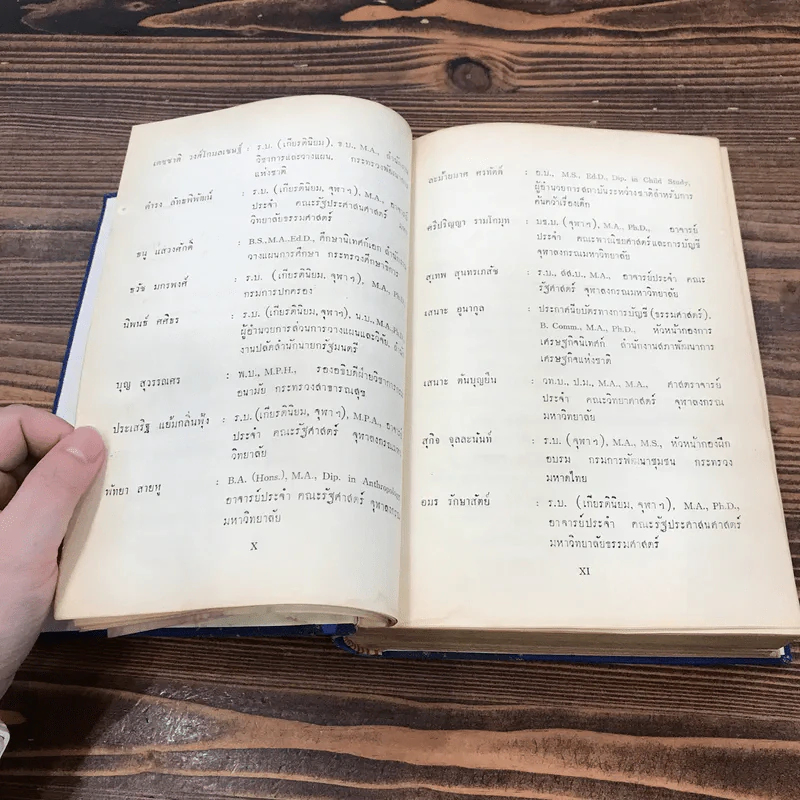 เดชชาติ วงศ์โกมลเชษฐ์ : ร.บ. (เกียรตินิยม), ช.บ., M.A.,
วิชาการและวางแผน, กระทรวงพัฒนาการ
แห่งชาติ
ดำรง ลัทธพิพัฒน์ : ร.บ. (เกียรตินิยม, จุฬาฯ), M.A.,
ประจำ คณะรัฐประศาสนศาสตร์
มหาวิทยาลัยธรรมศาสตร์
ธนู แสวงศักดิ์ : B.S., M.A., Ed.D., ศึกษานิเทศก์เอก
วางแผนการศึกษา กระทรวงศึกษาธิการ
ธวัช มกรพงศ์ : ร.บ. (เกียรตินิยม, จุฬาฯ), M.A., Ph.D.
กรมการปกครอง
นิพนธ์ ศศิธร : ร.บ. (เกียรตินิยม, จุฬาฯ), น.บ., M.A., Ph.D.
ผู้อำนวยการส่วนการวางแผนและวิจัย,
งานปลัดสำนักนายกรัฐมนตรี
บุญ สุวรรณศร : พ.บ., M.P.H., รองอธิบดีฝ่ายวิชาการกรม
อนามัย กระทรวงสาธารณสุข
ประเสริฐ แย้มกลิ่นฟุ้ง : ร.บ. (เกียรตินิยม, จุฬาฯ), M.P.A.,
ประจำ คณะรัฐศาสตร์ จุฬาลงกรณมหา
วิทยาลัย
พัทยา สายหู : B.A. (Hons.), M.A., Dip. in Anthropology
อาจารย์ประจำ คณะรัฐศาสตร์ จุฬาลงกรณ
มหาวิทยาลัย
X
ละม้ายมาศ ศรทัตต์ : อ.บ., M.S., Ed.D., Dip. in Child Study,
ผู้อำนวยการสถาบันระหว่างชาติสำหรับการ
ค้นคว้าเรื่องเด็ก
ศรีปริญญา รามโกมุท : มช.บ. (จุฬาฯ), M.A., Ph.D., อาจารย์
ประจำ คณะพาณิชยศาสตร์และการบัญชี
จุฬาลงกรณมหาวิทยาลัย
สุเทพ สุนทรเภสัช : ร.บ., สส.บ., M.A., อาจารย์ประจำ คณะ
รัฐศาสตร์ จุฬาลงกรณมหาวิทยาลัย
เสนาะ อูนากูล : ประกาศนียบัตรทางการบัญชี (ธรรมศาสตร์),
B. Comm., M.A., Ph.D., หัวหน้ากองการ
เศรษฐกิจนิเทศก์ สำนักงานสภาพัฒนาการ
เศรษฐกิจแห่งชาติ
เสนาะ ตันบุญยืน : วท.บ., ป.ม., M.A., M.A., ศาสตราจารย์
ประจำ คณะวิทยาศาสตร์ จุฬาลงกรณ
มหาวิทยาลัย
สุกิจ จุลละนันท์ : ร.บ. (จุฬาฯ), M.A., M.S., หัวหน้ากองฝึก
อบรม กรมการพัฒนาชุมชน กระทรวง
มหาดไทย
อมร รักษาสัตย์ : ร.บ. (เกียรตินิยม, จุฬาฯ), M.A., Ph.D.,
อาจารย์ประจำ คณะรัฐประศาสนศาสตร์
มหาวิทยาลัยธรรมศาสตร์
XI